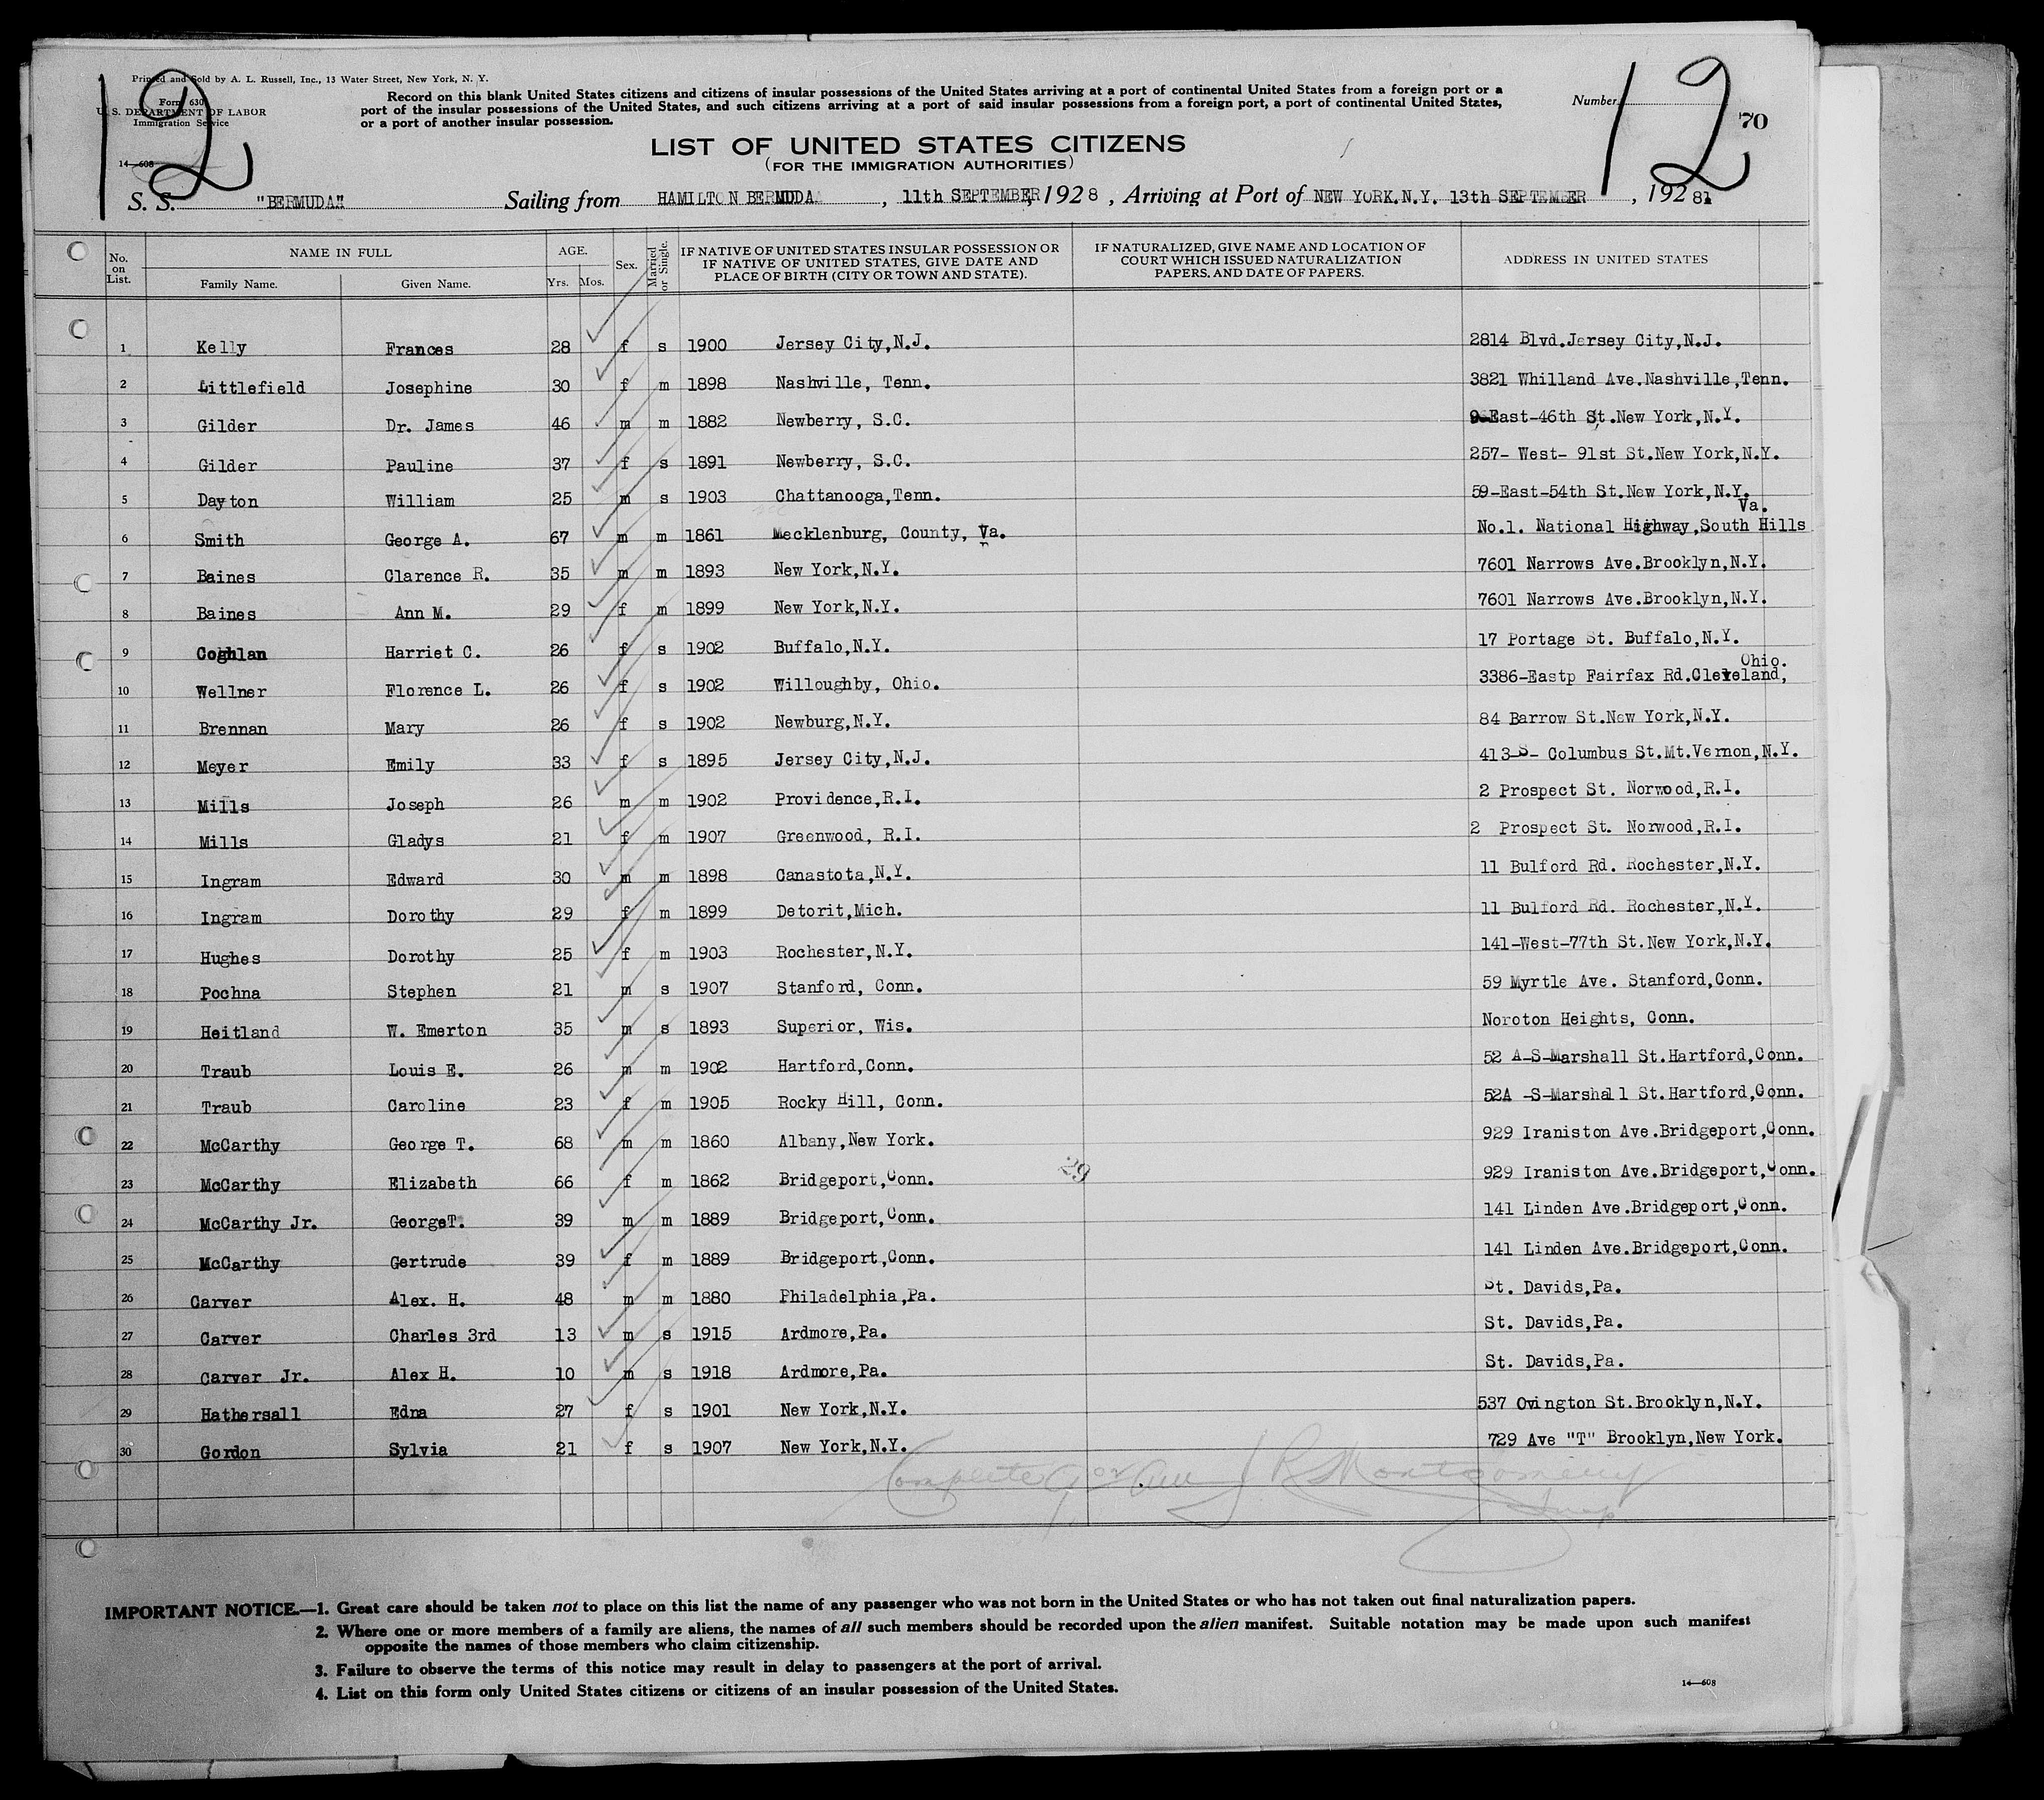 Printed and Sold by A. L. Russell, Inc., 13 Water Street, New York, N. Y.
Form 630
U. S. DEPARTMENT OF LABOR
Immigration Service
14—608
12
Record on this blank United States citizens and citizens of insular possessions of the United States arriving at a port of continental United States from a foreign port or a
port of the insular possessions of the United States, and such citizens arriving at a port of said insular possessions from a foreign port, a port of continental United States,
or a port of another insular possession.
Number
12
70
LIST OF UNITED STATES CITIZENS
(FOR THE IMMIGRATION AUTHORITIES)
S. S. "BERMUDA" Sailing from HAMILTON BERMUDA , 11th SEPTEMBER, 1928 , Arriving at Port of NEW YORK.N.Y. 13th SEPTEMBER , 1928
No. on List. NAME IN FULL AGE. Sex. Married or Single. IF NATIVE OF UNITED STATES INSULAR POSSESSION OR IF NATIVE OF UNITED STATES, GIVE DATE AND PLACE OF BIRTH (CITY OR TOWN AND STATE). IF NATURALIZED, GIVE NAME AND LOCATION OF COURT WHICH ISSUED NATURALIZATION PAPERS, AND DATE OF PAPERS. ADDRESS IN UNITED STATES
Family Name. Given Name. Yrs. Mos.
1 Kelly Frances 28 f s 1900 Jersey City,N.J. 2814 Blvd.Jersey City,N.J.
2 Littlefield Josephine 30 f m 1898 Nashville, Tenn. 3821 Whilland Ave.Nashville,Tenn.
3 Gilder Dr. James 46 m m 1882 Newberry, S.C. 9-East-46th St.New York,N.Y.
4 Gilder Pauline 37 f s 1891 Newberry, S.C. 257- West- 91st St.New York,N.Y.
5 Dayton William 25 m s 1903 Chattanooga,Tenn. 59-East-54th St.New York,N.Y.
Va.
6 Smith George A. 67 m m 1861 Mecklenburg, County, Va. No.1. National Highway,South Hills
7 Baines Clarence R. 35 m m 1893 New York,N.Y. 7601 Narrows Ave.Brooklyn,N.Y.
8 Baines Ann M. 29 f m 1899 New York,N.Y. 7601 Narrows Ave.Brooklyn,N.Y.
9 Coghlan Harriet C. 26 f s 1902 Buffalo,N.Y. 17 Portage St. Buffalo,N.Y.
Ohio.
10 Wellner Florence L. 26 f s 1902 Willoughby, Ohio. 3386-Eastp Fairfax Rd.Cleveland,
11 Brennan Mary 26 f s 1902 Newburg,N.Y. 84 Barrow St.New York,N.Y.
12 Meyer Emily 33 f s 1895 Jersey City,N.J. 413-S- Columbus St.Mt.Vernon,N.Y.
13 Mills Joseph 26 m m 1902 Providence,R.I. 2 Prospect St. Norwood,R.I.
14 Mills Gladys 21 f m 1907 Greenwood, R.I. 2 Prospect St. Norwood,R.I.
15 Ingram Edward 30 m m 1898 Canastota,N.Y. 11 Bulford Rd. Rochester,N.Y.
16 Ingram Dorothy 29 f m 1899 Detorit,Mich. 11 Bulford Rd. Rochester,N.Y.
17 Hughes Dorothy 25 f m 1903 Rochester,N.Y. 141-West-77th St.New York,N.Y.
18 Pochna Stephen 21 m s 1907 Stanford, Conn. 59 Myrtle Ave. Stanford,Conn.
19 Heitland W. Emerton 35 m s 1893 Superior, Wis. Noroton Heights, Conn.
20 Traub Louis E. 26 m m 1902 Hartford,Conn. 52 A-S-Marshall St.Hartford,Conn.
21 Traub Caroline 23 f m 1905 Rocky Hill, Conn. 52A -S-Marshall St.Hartford,Conn.
22 McCarthy George T. 68 m m 1860 Albany,New York. 929 Iraniston Ave.Bridgeport,Conn.
29
23 McCarthy Elizabeth 66 f m 1862 Bridgeport,Conn. 929 Iraniston Ave.Bridgeport,Conn.
24 McCarthy Jr. GeorgeT. 39 m m 1889 Bridgeport,Conn. 141 Linden Ave.Bridgeport,Conn.
25 McCarthy Gertrude 39 f m 1889 Bridgeport,Conn. 141 Linden Ave.Bridgeport,Conn.
26 Carver Alex. H. 48 m m 1880 Philadelphia,Pa. St. Davids,Pa.
27 Carver Charles 3rd 13 m s 1915 Ardmore,Pa. St. Davids,Pa.
28 Carver Jr. Alex H. 10 m s 1918 Ardmore,Pa. St. Davids,Pa.
29 Hathersall Edna 27 f s 1901 New York,N.Y. 537 Ovington St.Brooklyn,N.Y.
30 Gordon Sylvia 21 f s 1907 New York,N.Y. 729 Ave "T" Brooklyn,New York.
Complete J R Montgomery
IMPORTANT NOTICE.—1. Great care should be taken not to place on this list the name of any passenger who was not born in the United States or who has not taken out final naturalization papers.
2. Where one or more members of a family are aliens, the names of all such members should be recorded upon the alien manifest. Suitable notation may be made upon such manifest
opposite the names of those members who claim citizenship.
3. Failure to observe the terms of this notice may result in delay to passengers at the port of arrival.
4. List on this form only United States citizens or citizens of an insular possession of the United States.
14—608